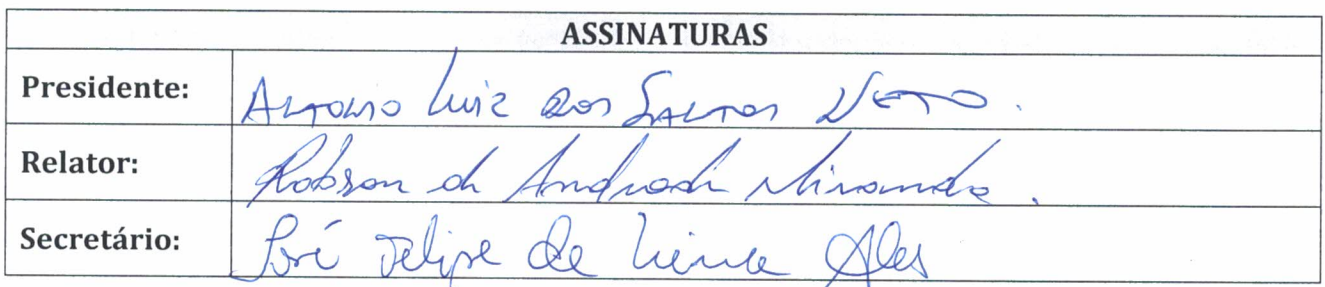 ASSINATURAS
Presidente: Antonio Luiz dos Santos Neto.
Relator: Robson de Andrade Miranda.
Secretário: José Felipe de